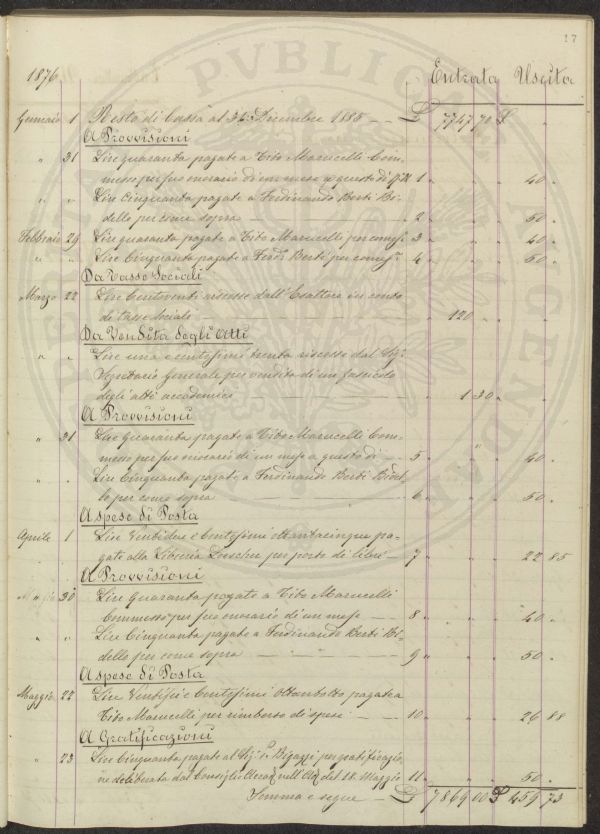 17
1876 Entrata Uscita
Gennaio 1 Resto di Cassa al 31 Dicembre 1885 £ 7747 70 £
A Provvisioni
" 31 Lire quaranta pagate a Tito Marucelli Com-
messo per suo onorario di un mese a questo dì 1 40
" " Lire Cinquanta pagate a Ferdinando Berti Bi-
dello per come sopra 2 50
Febbraio 29 Lire quaranta pagate a Tito Marucelli per come s. 3 40
" " Lire Cinquanta pagate a Ferd. Berti per come s. 4 50
Da Tasse Sociali
Marzo 22 Lire Centoventi riscosse dall'Esattore in conto
di tasse sociali 120
Da Vendita degli Atti
" " Lire una e centesimi trenta riscosse dal Sig.
Segretario Generale per vendita di un fascicolo
degli atti accademici 1 30
A Provvisioni
" 31 Lire Quaranta pagate a Tito Marucelli Com-
messo per suo onorario di un mese a questo dì 5 40
" " Lire Cinquanta pagate a Ferdinando Berti Bidel-
lo per come sopra 6 50
A spese di Posta
Aprile 1 Lire Ventidue e Centesimi ottantacinque pa-
gate alla Libreria Loescher per porto di libri 7 22 85
A Provvisioni
30 Lire Quaranta pagate a Tito Marucelli
Commesso per suo onorario di un mese 8 40
" " Lire Cinquanta pagate a Ferdinando Berti Bi-
dello per come sopra 9 50
A spese di Posta
Maggio 22 Lire Ventisei e Centesimi Ottantotto pagate a
Tito Marucelli per rimborso di spese 10 26 88
A Gratificazioni
" 23 Lire Cinquanta pagate al Sig. P. Bigazzi per gratificazio-
ne deliberata dal Consiglio nell' del 18 Maggio 11 50
Somma e segue £ 7869 00 £ 459 73
PUBLICA